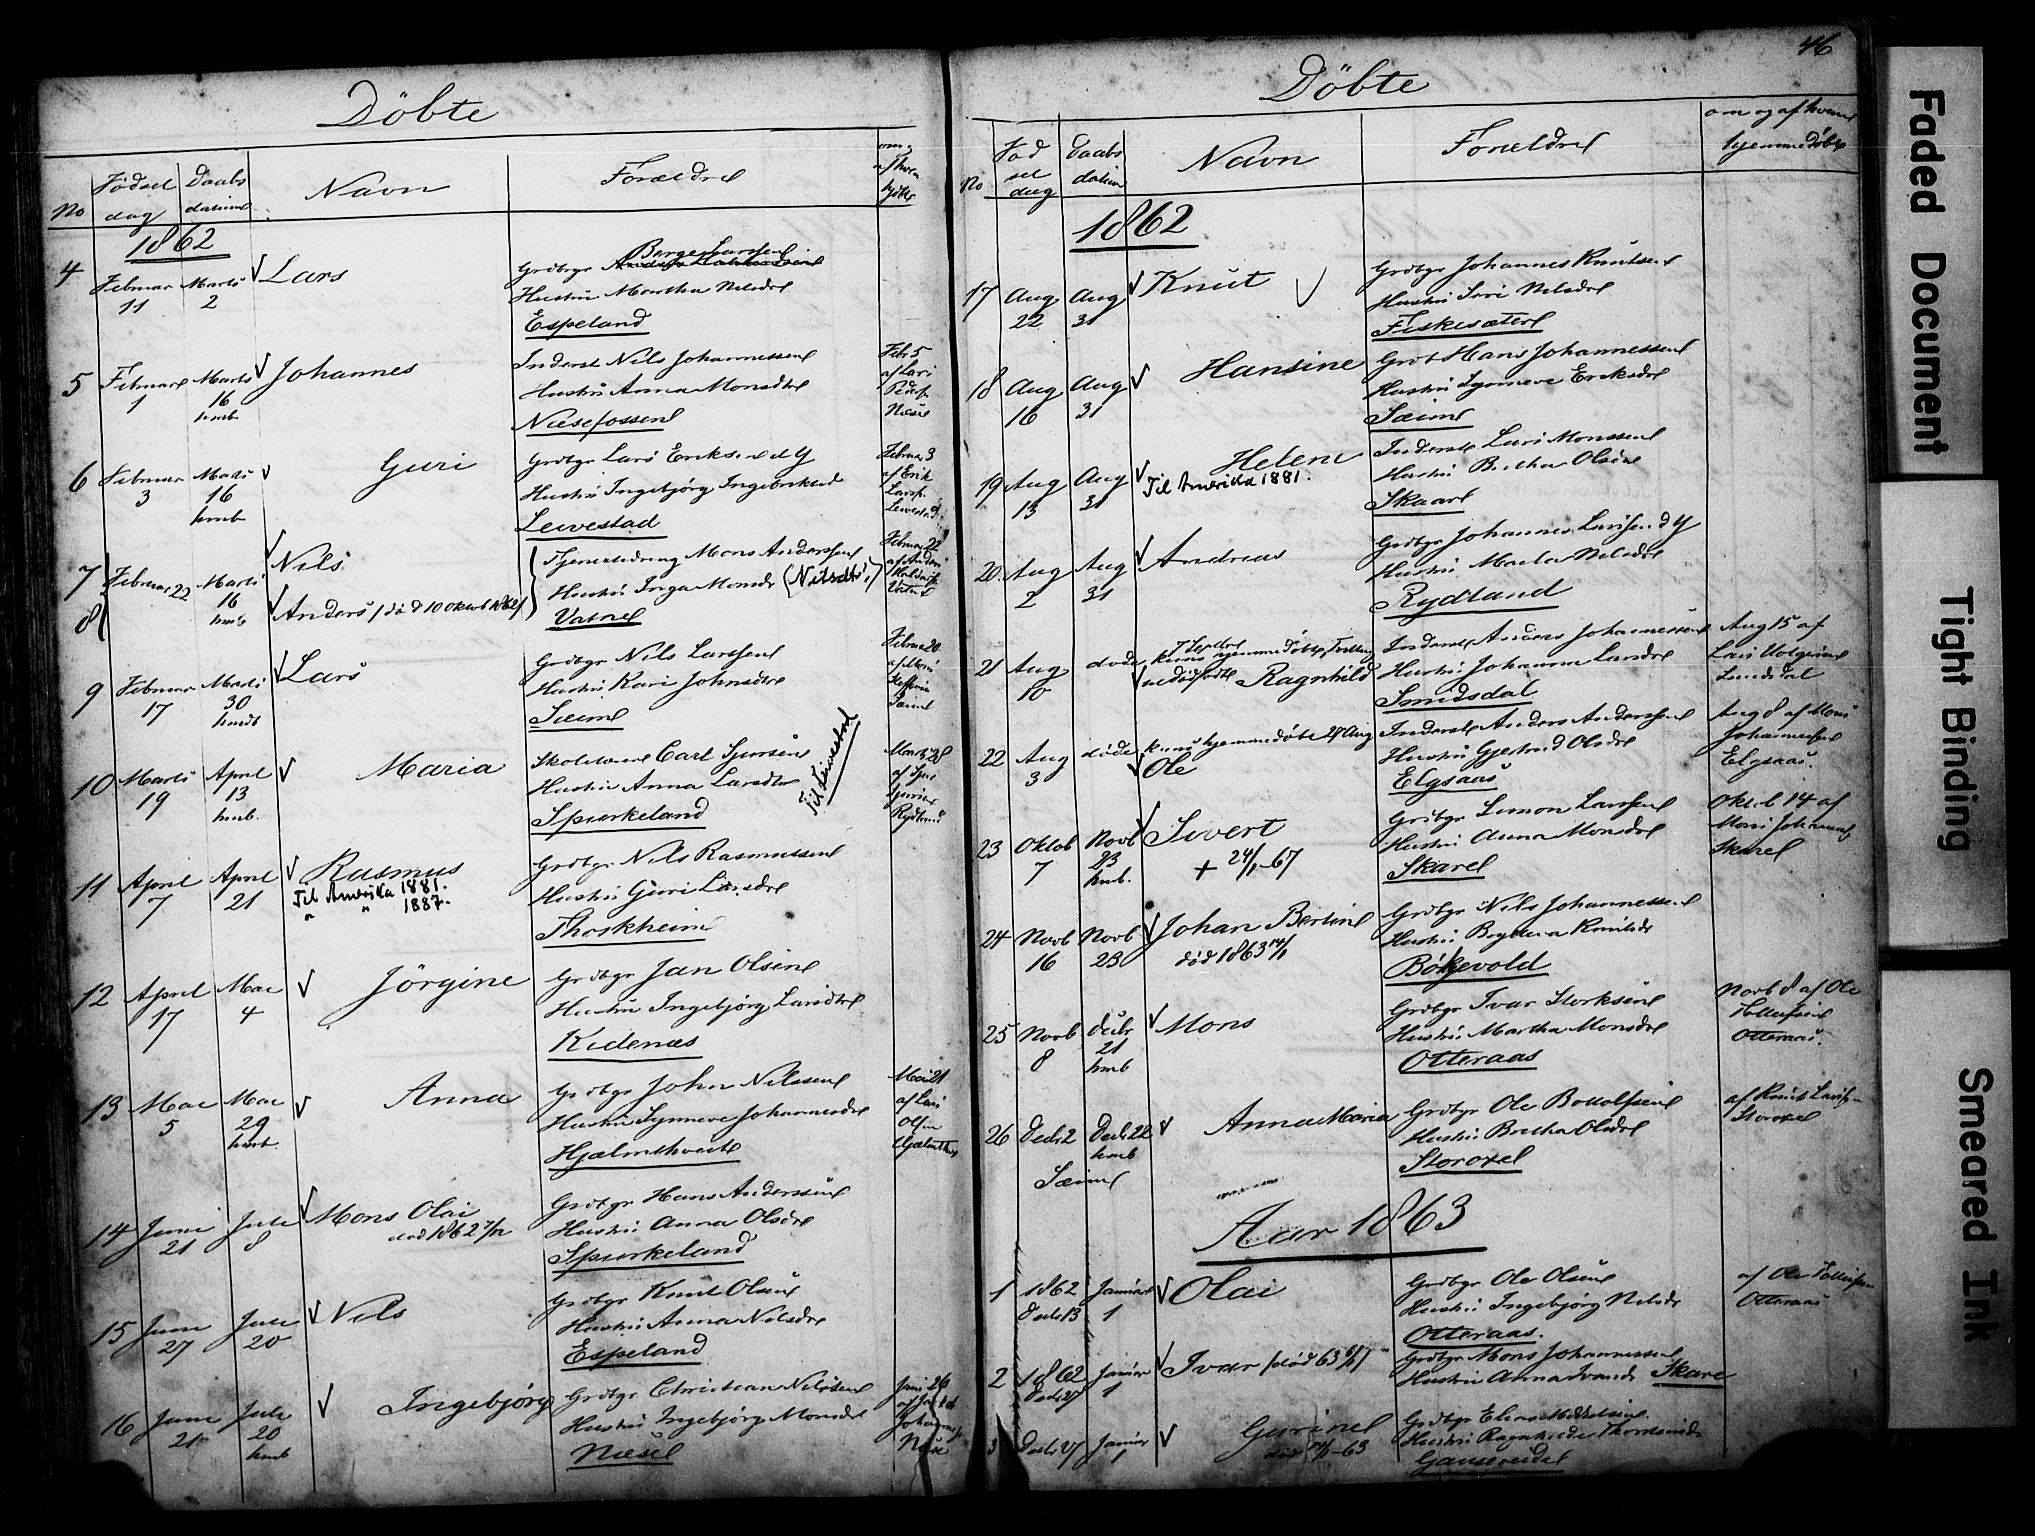 46
Döbte
No
Födsel dag
Daabs datum
Navn
Forældre
1862
4 Februar 11 Marts 2 Lars
Grdbgr Berge Larssen
Hustru Martha Nilsdtr
Espeland
5 Februar 1 Marts 16 hmb Johannes
Inderst Nils Johannessen
Hustru Anna Monsdtr
Næsefossen
Febr 5 af Lars Peders Næse
6 Februar 3 Marts 16 hmb Guri
Grdbgr Lars Eriksen d y
Hustru Ingebjörg Ingebriktsd
Levestad
Februar 3 af Erik Larss. Levestad
7 8 Februar 22 Marts 16 hmb
Nils
Anders / död 10 Oktob 1862 /
Mons Andersen
Hustru Inga Monsdr (Nilsdtr)
Vatne
Februar 22 af Anders
9 Februar 17 Marts 30 hmdt Lars
Grdbgr Nils Larssen
Hustru Kari Johnsdtr
Sæim
Februar 20 af Mons Sæim
10 Marts 19 April 13 hmb. Maria
Skolelærer Carl Sjursen
Hustru Anna Larsdtr
Spurkeland
Til Leivestad
Rydland
11 April 7 April 21 Rasmus
Til Amerika 1881.
" " 1887.
Grdbgr Nils Rasmussen
Hustru Guri Larsdtr
Thoskheim
12 April 17 Mai 4 Jörgine
Grdbgr Jan Olsen
Hustru Ingebjörg Larsdtr
Kidenæs
13 Mai 5 Mai 29 hmb. Anna
Grdbgr John Nilssen
Hustru Synneve Johannesdtr
Hjelmthveit
Mai 21 af Lars
14 Juni 21 Juli 8 Mons Olai
död 1862
Grdbgr Hans Andersen
Hustru Anna Olsdtr
Spurkeland
15 Juni 27 Juli 20 Nils
Grdbgr Knut Olsen
Hustru Anna Nilsdtr
Espeland
16 Juni 21 Juli 20 hmb Ingebjörg
Grdbgr Christian Nilssen
Hustru Ingebjörg Monsdtr
Næse
Juni 26
Næse
Döbte
No
Föd sel dag
Daabs datum
Navn
Forældre
om og af hvem hjemmedöbt
1862
17 Aug 22 Aug 31 Knut
Grdbgr Johannes Knutsen
Hustru Siri Nilsdtr
Fiskesæter
18 Aug 16 Aug 31 Hansine
Grdb Hans Johannessen
Hustru Synneve Eriksdtr
Sæim
19 Aug 13 Aug 31 Helene
Til Amerika 1881.
Inderst Lars Monssen
Hustru Brita Olsdtr
Skaar
20 Aug 2 Aug 31 Andreas
Grdbgr Johannes Larssen d y
Hustru Marta Nilsdtr
Rydland
21 Aug 10 döde
Ragnhild
Inderst Anders Johannessen
Hustru Johanna Larsdtr
Smidsdal
Aug 15 af Lars
22 Aug 3 döde kuns hjemmedöbt 27 Aug
Ole
Inderst Anders Anderssen
Hustru Gjertrud Olsdtr
Elgsaas
Aug 8 af Mons Johannessen Elgsaas.
23 Oktob 7 Novb 23 hmb. Sivert
+ 24/1-67
Grdbgr Simon Larssen
Hustru Anna Monsdtr
Skare
Oktob 14 af Mons Johannes Skare
24 Novb 16 Novb 23 Johan Bertin
död 1863 14/1
Grdbgr Nils Johannessen
Hustru Brytteva Knutsdr
Bögevold
25 Novb 8 Decbr 21 hmb Mons
Grdbgr Ivar Storksen
Hustru Martha Monsdtr
Otteraas
Novb 8 af Ole Tollefsen Otteraas.
26 Decbr 2 Decbr 22 hmb Anna Maria
Sæim
Grdbgr Ole Botolfsen
Hustru Bretha Olsdtr
Storoxel
af Knut Larss Storoxel
Aar 1863
1 1862 Decbr 13 Januar 1 Olai
Grdbgr Ole Olsen
Hustru Ingebjörg Nilsdr
Otteraas.
af Ole Tollefsen Otteraas
2 1862 Decbr 27 Januar 1 Ivar
Grdbgr Mons Johannessen
Hustru Anna Ivarsdr Skare
3 Decbr 27 Januar 1 Gurine
Grdbgr Elias Mikkelsen.
Hustru Ragnhilde Thorsteinsdr
Gausereidet
Faded Document
Tight Binding
Smeared Ink